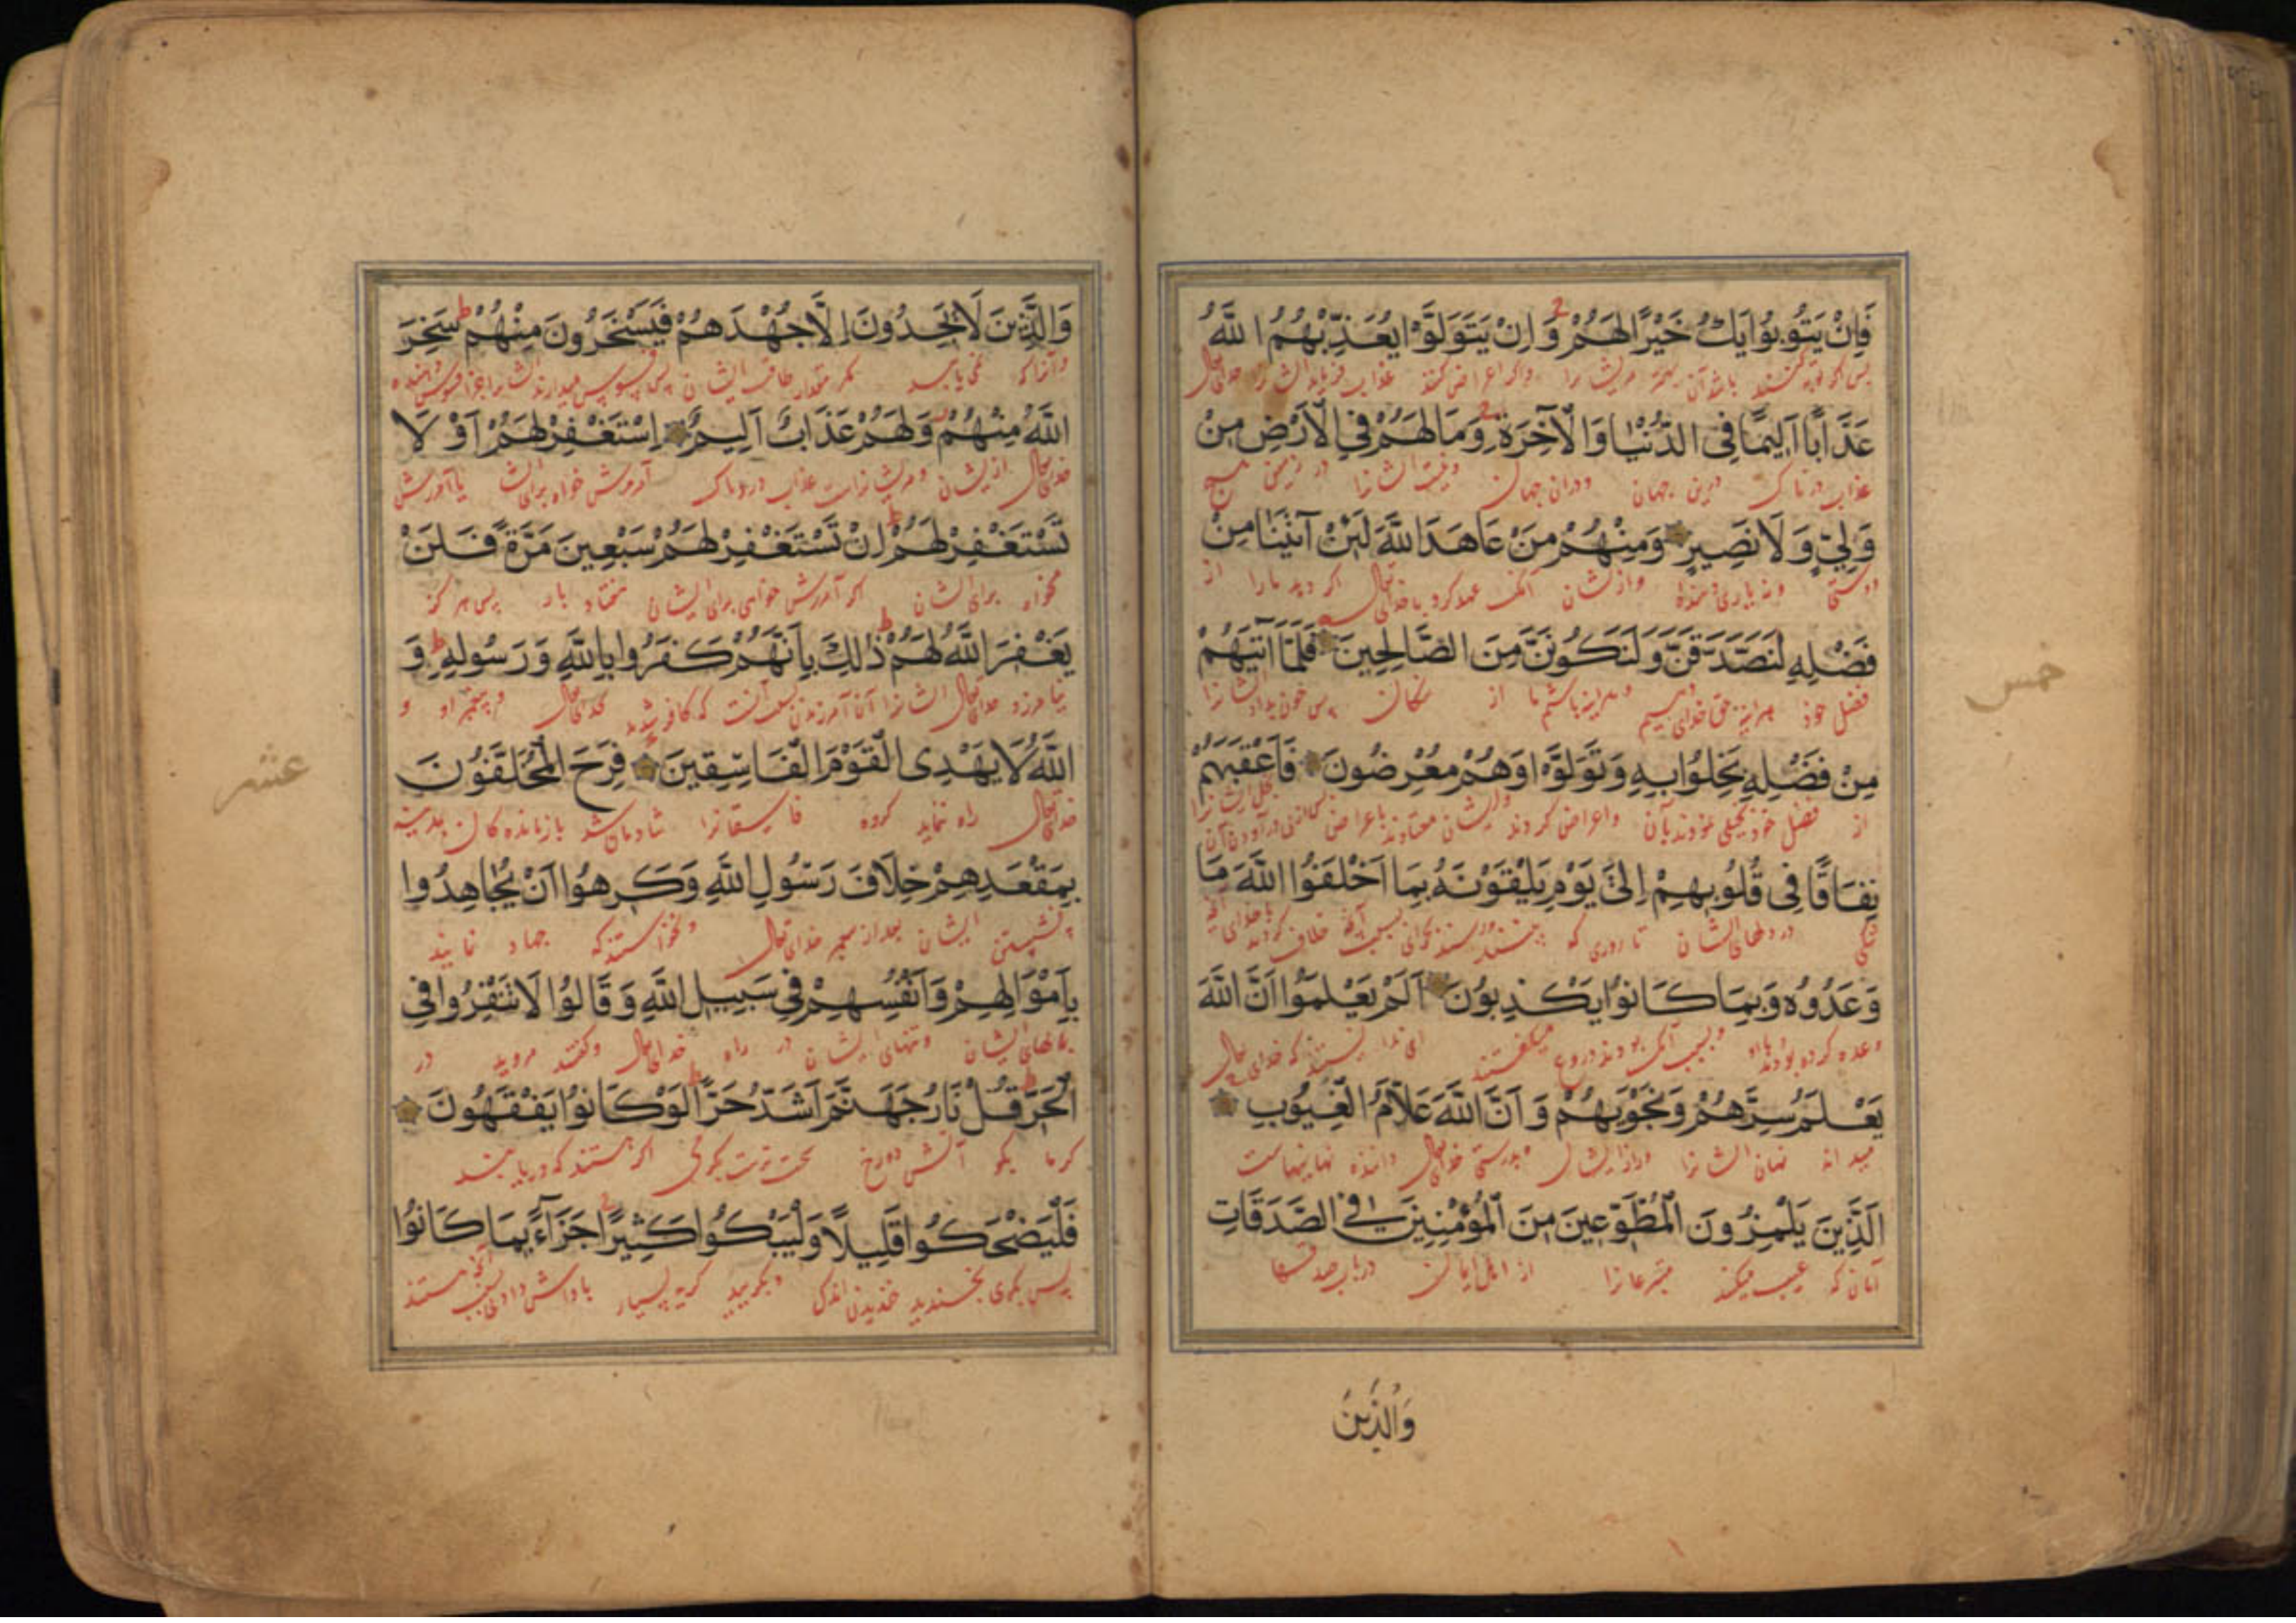 فَاِنْ يَتُوبُوا يَكُ خَيْرًا لَهُمْ وَاِنْ يَتَوَلَّوْا يُعَذِّبْهُمُ اللَّهُ
پس اگر توبه کنند باشد آن بهتر مریشانرا واگر اعراض کنند عذاب فرماید ایشانرا خدای تعالی
عَذَابًا اَلِيمًا فِى الدُّنْيَا وَالْآخِرَةِ وَمَا لَهُمْ فِي الْاَرْضِ مِنْ
عذاب دردناک درین جهان ودران جهان ونیست ایشانرا در زمین هیچ
وَلِيٍّ وَلَا نَصِيرٍ وَمِنْهُمْ مَنْ عَاهَدَ اللَّهَ لَئِنْ آتَيْنَا مِنْ
دوستی ونه یاری دهنده وازیشان آنکه عهد کرد با خدای تعالی اگر دهد مارا از
فَضْلِهِ لَنَصَّدَّقَنَّ وَلَنَكُونَنَّ مِنَ الصَّالِحِينَ فَلَمَّا اٰتٰيهُمْ
فضل خود هر اینه وهراینه باشیم ما از نیکان پس چون بداد ایشانرا
مِنْ فَضْلِهِ بَخِلُوا بِهِ وَتَوَلَّوْا وَهُمْ مُعْرِضُونَ فَاَعْقَبَهُمْ
از فضل خود بخیلی نمودند بآن واعراض کردند وایشان
نِفَاقًا فِى قُلُوبِهِمْ اِلَىٰ يَوْمِ يَلْقَوْنَهُ بِمَا اَخْلَفُوا اللَّهَ مَا
در دلهای ایشان تا روزی که بسبب آنکه خلاف کردند با خدای
وَعَدُوهُ وَبِمَا كَانُوا يَكْذِبُونَ اَلَمْ يَعْلَمُوا اَنَّ اللَّهَ
وعده کرده بودند با او وبسبب آنکه بودند دروغ میگفتند ندانستند که خدای تعالی
يَعْلَمُ سِرَّهُمْ وَنَجْوٰيهُمْ وَاَنَّ اللَّهَ عَلَّامُ الْغُيُوبِ
میداند نهان ایشانرا وراز ایشان وبدرستی خدای تعالی داننده نهانیهاست
اَلَّذِينَ يَلْمِزُونَ الْمُطَّوِّعِينَ مِنَ الْمُؤْمِنِينَ فِي الصَّدَقَاتِ
آنان که عیب میکنند متبرعانرا از اهل ایمان درباب صدقها
وَالَّذِينَ
خمس
وَالَّذِينَ لَا يَجِدُونَ اِلَّا جُهْدَهُمْ فَيَسْخَرُونَ مِنْهُمْ سَخِرَ
وآنراکه نمی یابند مگر مقدار طاقت ایشان پس
اللَّهُ مِنْهُمْ وَلَهُمْ عَذَابٌ اَلِيمٌ اِسْتَغْفِرْ لَهُمْ اَوْ لَا
خدای تعالی ازیشان ومریشانراست عذاب دردناک آمرزش خواه برای ایشان یا آمرزش
تَسْتَغْفِرْ لَهُمْ اِنْ تَسْتَغْفِرْ لَهُمْ سَبْعِينَ مَرَّةً فَلَنْ
مخواه برای ایشان اگر آمرزش خواهی برای ایشان هفتاد بار پس هرگز
يَغْفِرَ اللَّهُ لَهُمْ ذٰلِكَ بِاَنَّهُمْ كَفَرُوا بِاللَّهِ وَرَسُولِهِ وَ
نیامرزد خدای تعالی ایشانرا که کافر شدند بخدای تعالی وپیغمبر او و
اللَّهُ لَا يَهْدِى الْقَوْمَ الْفَاسِقِينَ فَرِحَ الْمُخَلَّفُونَ
خدای تعالی راه ننماید گروه فاسقانرا شادمان شد بازمانده کان
بِمَقْعَدِهِمْ خِلَافَ رَسُولِ اللَّهِ وَكَرِهُوا اَنْ يُجَاهِدُوا
بنشستن ایشان بعد از پیغمبر خدای تعالی ونخواستند که جهاد نمایند
بِاَمْوَالِهِمْ وَاَنْفُسِهِمْ فِي سَبِيلِ اللَّهِ وَقَالُوا لَا تَنْفِرُوا فِي
بمالهای ایشان وتنهای ایشان در راه خدای تعالی وگفتند مروید در
الْحَرِّ قُلْ نَارُ جَهَنَّمَ اَشَدُّ حَرًّا لَوْ كَانُوا يَفْقَهُونَ
گرما بگو آتش دوزخ سخت ترست بگرمی اگر هستند که دریابند
فَلْيَضْحَكُوا قَلِيلًا وَلْيَبْكُوا كَثِيرًا جَزَاءً بِمَا كَانُوا
پس بخندید خندیدن اندک وبگریید گریه بسیار پاداش هستند
عشر